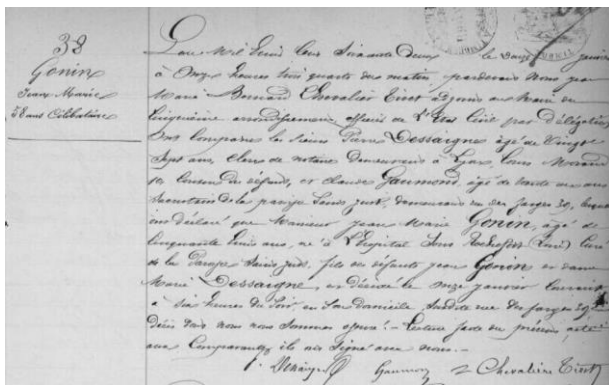 38
Gonin
Jean Marie
58 ans Célibataire
L'an Mil huit Cent Soixante Deux le Douze janvier
à Onze heures trois quarts du matin, pardevant Nous jean
Marie Bonnard Chevalier Tivet adjoint au Maire du
Cinquième arrondissement officier de l'Etat Civil par délégation
Ont Comparu les Sieurs Pierre Dessaigne âgé de Vingt
Sept ans, Clerc de notaire demeurant à Lyon, Cours Morand
Cousin du défunt, et Claude Gaumond, âgé de trente ans
Sacristain de la paroisse Saint just, demeurant rue des farges 30, lesquels
ont déclaré que Monsieur jean Marie Gonin, âgé de
Cinquante huit ans, né à L'hopital Sous Rochefort (Loire) Curé
de la Paroisse Saint just, fils des défunts jean Gonin et dame
Marie Dessaigne, est décédé le Onze janvier Courant
à Six heures du Soir, en Son domicile Susdite rue des farges 30
dont Nous nous Sommes assuré. Lecture faite du présent acte
aux Comparants, ils ont Signé avec nous.
P. Dessaigne Gaumond Chevalier Tivet